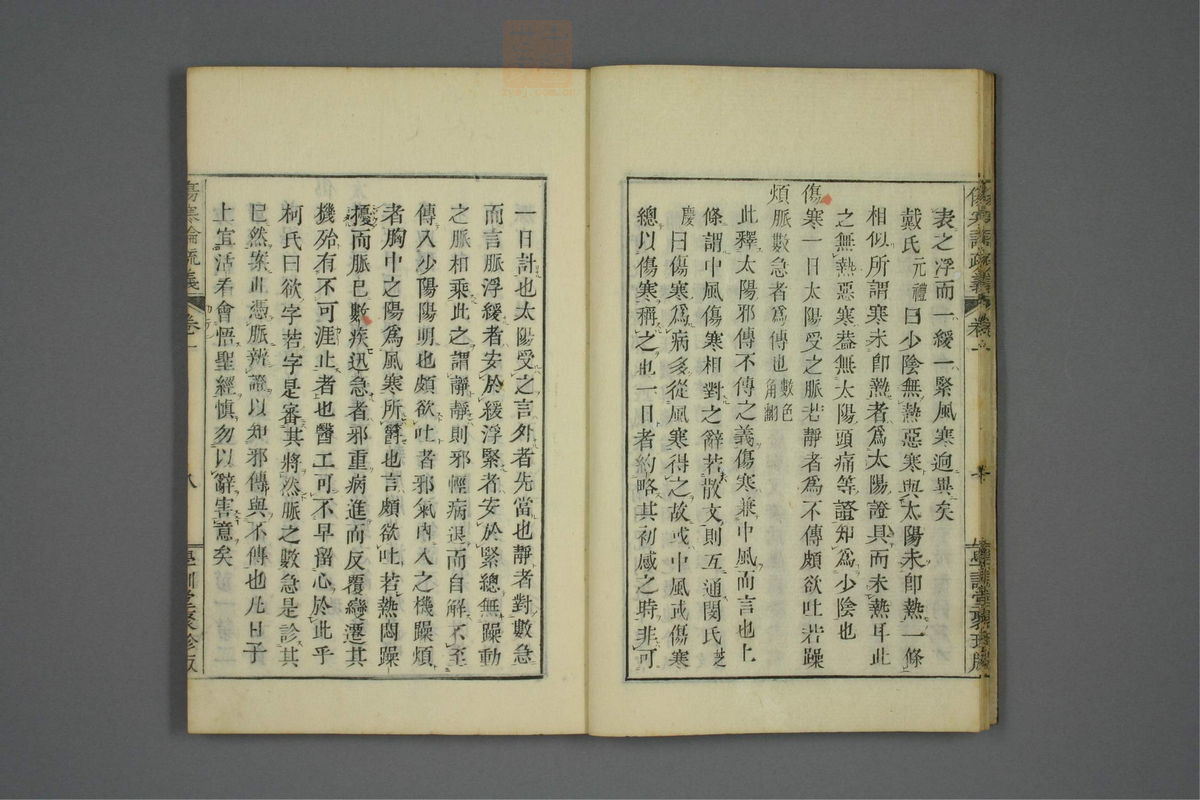 表之浮而一緩一緊風寒逈異矣
戴氏元禮曰少陰無熱惡寒與太陽未卽熱一條
相似所謂寒未卽熱者爲太陽證具而未熱耳此
之無熱惡寒葢無太陽頭痛等證知爲少陰也
傷寒一日太陽受之脈若靜者爲不傳頗欲吐若躁
煩脈數急者爲傳也數色角翻
此釋太陽邪傳不傳之義傷寒兼中風而言也上
條謂中風傷寒相對之辭若散文則互通閔氏芝
慶曰傷寒爲病多從風寒得之故或中風或傷寒
總以傷寒稱之也一日者約略其初感之時非可
一日計也太陽受之言外者先當也靜者對數急
而言脈浮緩者安於緩浮緊者安於緊總無躁動
之脈相乘此之謂靜靜則邪輕病退而自解不至
傳入少陽陽明也頗欲吐者邪氣內入之機躁煩
者胸中之陽爲風寒所鬱也言頗欲吐若熱悶躁
擾而脈已數疾迅急者邪重病進而反覆變遷其
機殆有不可涯止者也醫工可不早留心於此乎
柯氏曰欲字若字是審其將然脈之數急是診其
已然案此憑脈辨證以知邪傳與不傳也凡日子
上宜活看會悟聖經愼勿以辭害意矣
傷寒論疏義
卷一
八
學訓堂聚珍版